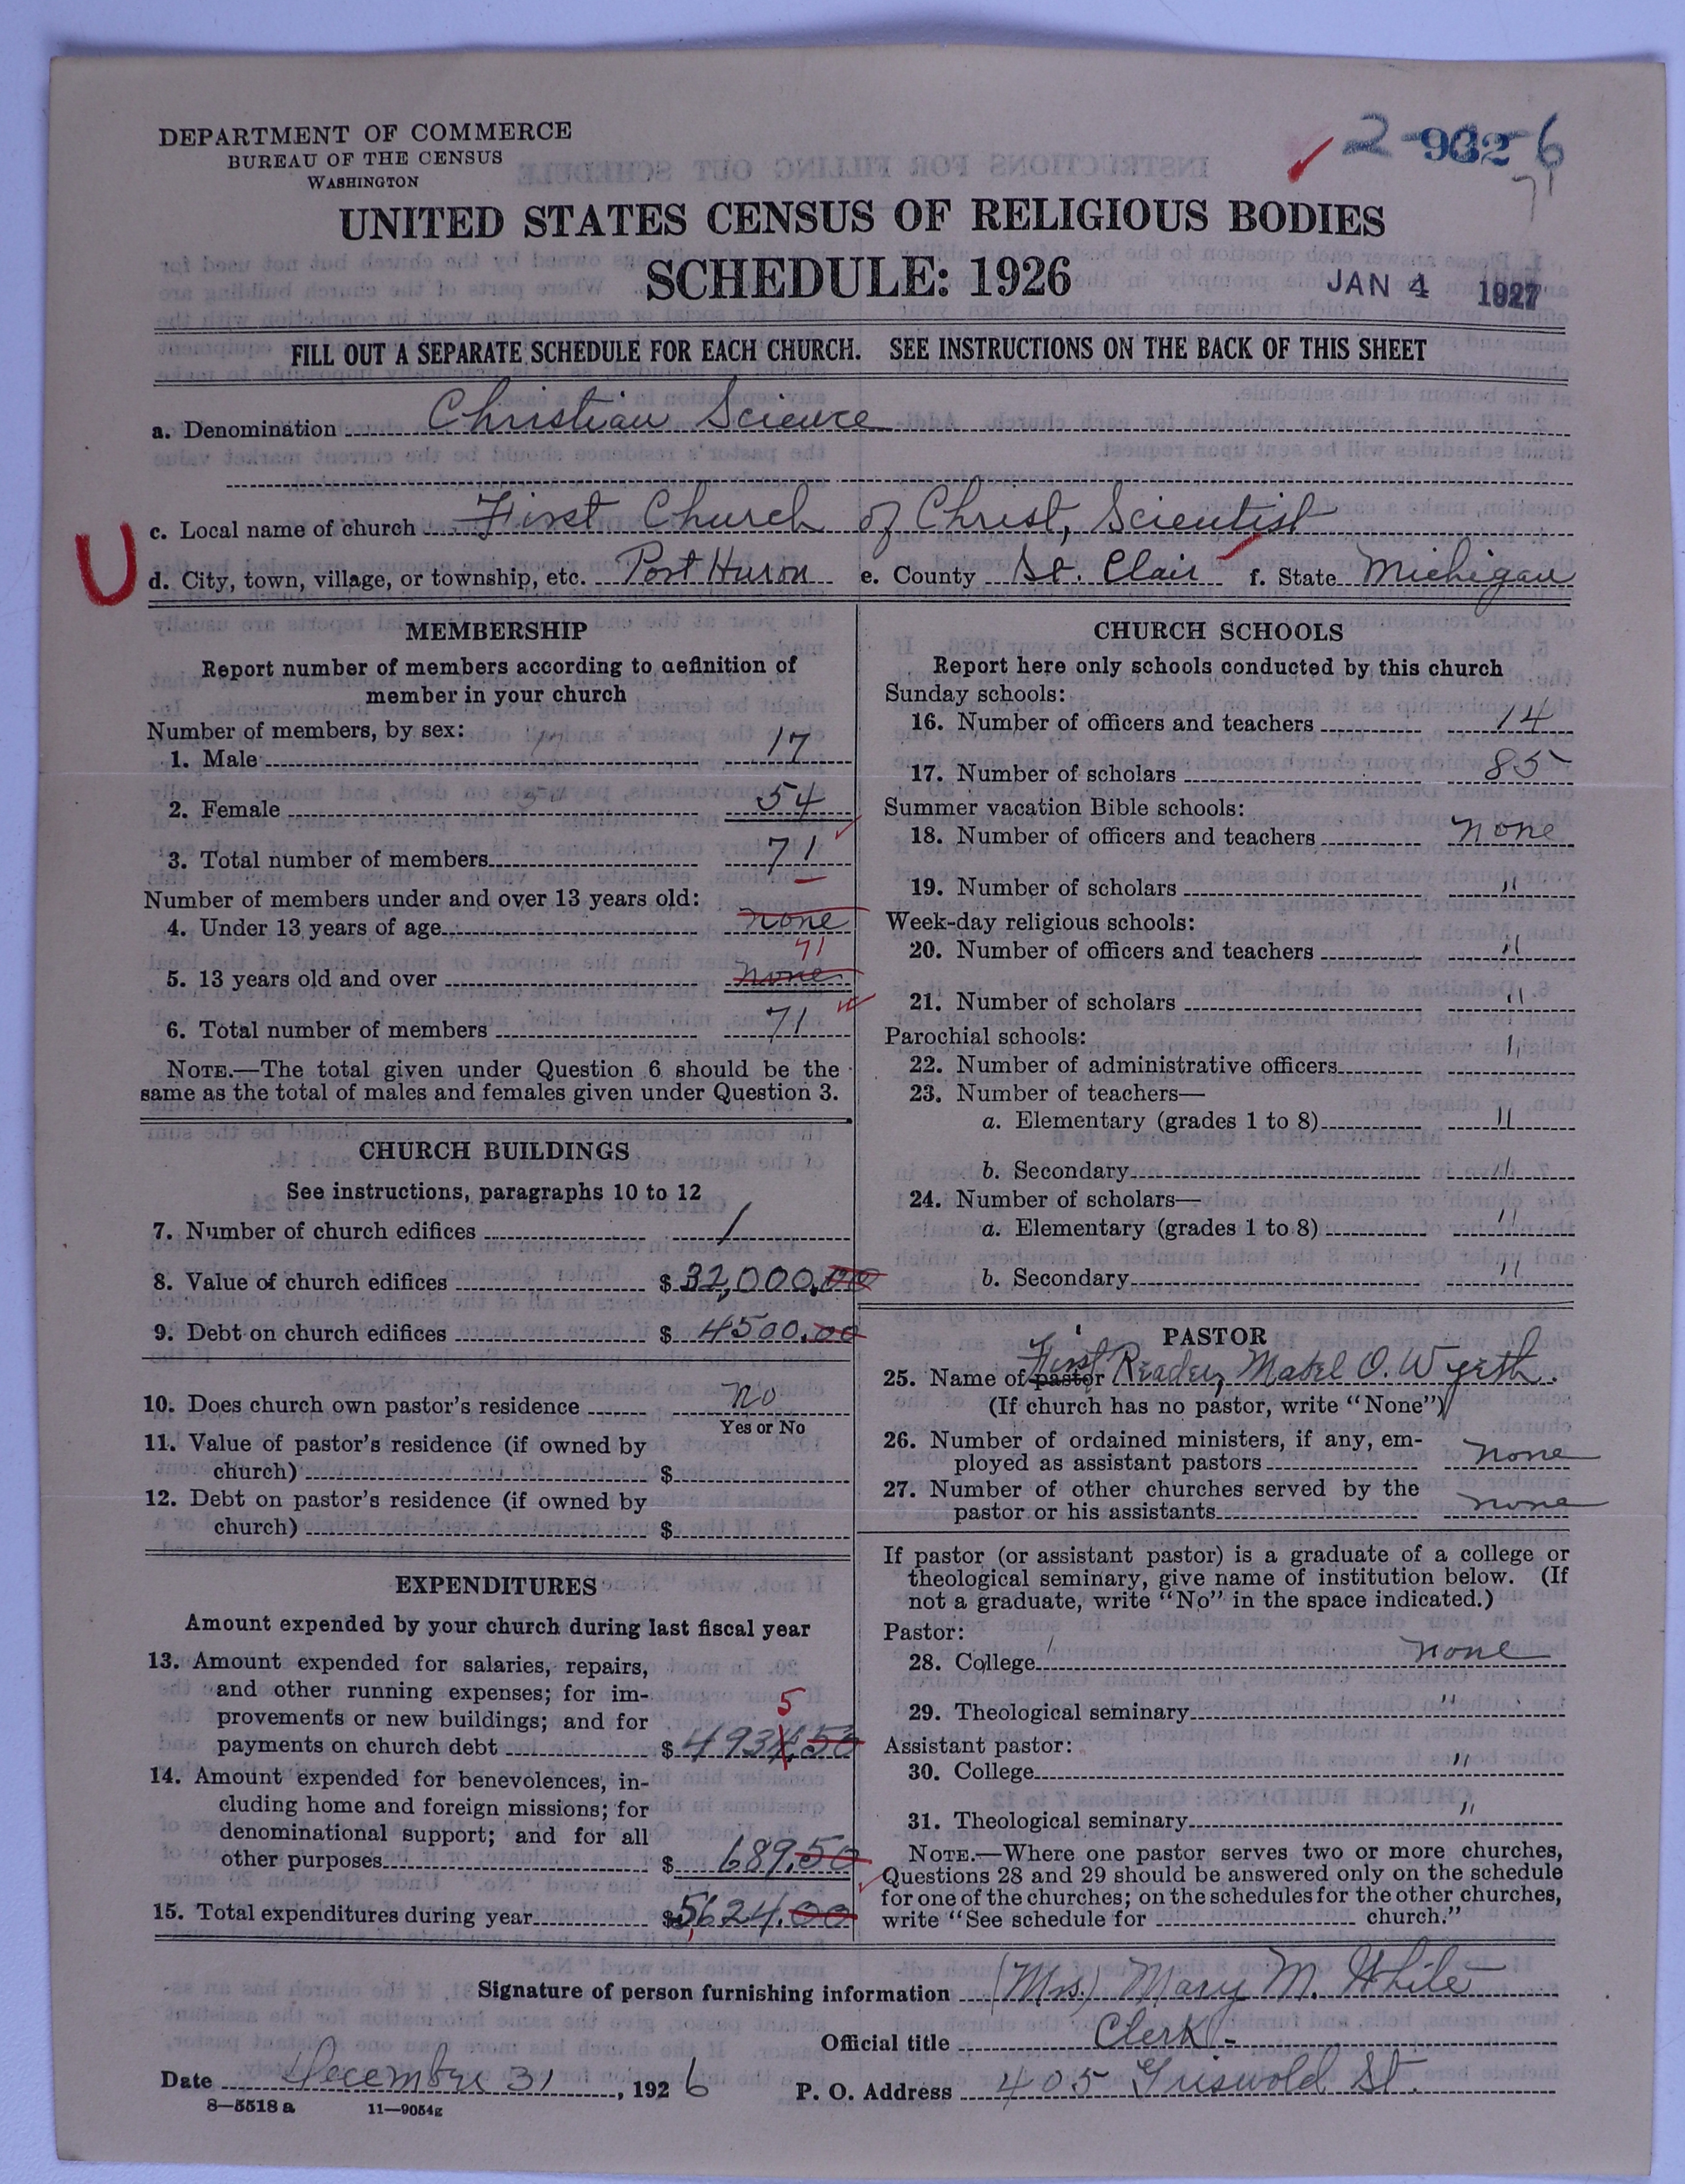 DEPARTMENT OF COMMERCE
BUREAU OF THE CENSUS
WASHINGTON
2-932-6
71
UNITED STATES CENSUS OF RELIGIOUS BODIES
SCHEDULE: 1926
JAN 4 1927
FILL OUT A SEPARATE SCHEDULE FOR EACH CHURCH. SEE INSTRUCTIONS ON THE BACK OF THIS SHEET
a. Denomination Christian Science
c. Local name of church First Church of Christ, Scientist
U
d. City, town, village, or township, etc. Port Huron e. County St. Clair f. State Michigan
MEMBERSHIP
Report number of members according to definition of
member in your church
Number of members, by sex:
1. Male 17
2. Female 54
3. Total number of members 71
Number of members under and over 13 years old:
4. Under 13 years of age none
71
5. 13 years old and over none
6. Total number of members 71
NOTE.—The total given under Question 6 should be the
same as the total of males and females given under Question 3.
CHURCH BUILDINGS
See instructions, paragraphs 10 to 12
7. Number of church edifices 1
8. Value of church edifices $ 32,000.00
9. Debt on church edifices $ 4500.00
10. Does church own pastor's residence no
Yes or No
11. Value of pastor's residence (if owned by
church) $
12. Debt on pastor's residence (if owned by
church) $
EXPENDITURES
Amount expended by your church during last fiscal year
13. Amount expended for salaries, repairs,
and other running expenses; for im-
provements or new buildings; and for
5
payments on church debt $ 4934.50
14. Amount expended for benevolences, in-
cluding home and foreign missions; for
denominational support; and for all
other purposes $ 689.50
15. Total expenditures during year $ 5,624.00
CHURCH SCHOOLS
Report here only schools conducted by this church
Sunday schools:
16. Number of officers and teachers 14
17. Number of scholars 85
Summer vacation Bible schools:
18. Number of officers and teachers none
19. Number of scholars "
Week-day religious schools:
20. Number of officers and teachers "
21. Number of scholars "
Parochial schools:
22. Number of administrative officers "
23. Number of teachers—
a. Elementary (grades 1 to 8) "
b. Secondary "
24. Number of scholars—
a. Elementary (grades 1 to 8) "
b. Secondary "
PASTOR
25. Name of pastor First Reader, Mabel O. Wyeth.
(If church has no pastor, write "None")
26. Number of ordained ministers, if any, em-
ployed as assistant pastors none
27. Number of other churches served by the
pastor or his assistants none
If pastor (or assistant pastor) is a graduate of a college or
theological seminary, give name of institution below. (If
not a graduate, write "No" in the space indicated.)
Pastor:
28. College none
29. Theological seminary "
Assistant pastor:
30. College "
31. Theological seminary "
NOTE.—Where one pastor serves two or more churches,
Questions 28 and 29 should be answered only on the schedule
for one of the churches; on the schedules for the other churches,
write "See schedule for church."
Signature of person furnishing information (Mrs.) Mary M. White
Official title Clerk -
Date December 31, 1926 P. O. Address 405 Griswold St.
8—5518 a 11—9054g